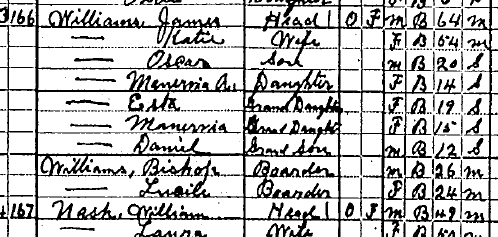 166 Williams, James Head 1 O F M B 64 M
— Katie Wife F B 54 M
— Oscar Son M B 20 S
— Manervia A. Daughter F B 14 S
— Esta Grand Daughter F B 19 S
— Manervia Grand Daught F B 15 S
— Daniel Grand Son M B 12 S
Williams, Bishop Boarder M B 26 M
— Lucile Boarder F B 24 M
167 Nash, William Head 1 O F M B 49 M
Laura Wife F B